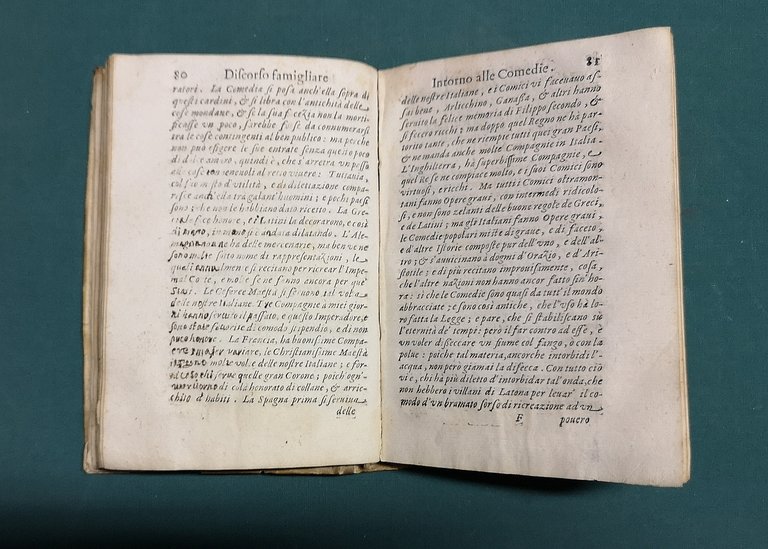 80 Discorso famigliare
ratori. La Comedia si posa anch'ella sopra di
questi cardini, & si libra con l'antichità delle
cose mondane, & se la sua
pò da connumerarsi
tra le cose contingenti al ben publico: ma perche
non può esigere le sue entrate senza questo poco
di quindi è, che s'arretra un passo
al retto vivere: Tuttauia,
misto d'vtilità, e di dilettazione compa-
galant'huomini; e pochi paesi
sono che non le habbiano dato ricetto. La Gre-
honore, i Latini la decorarono, e così
andata dilatando. L'Ale-
ne ha delle mercenarie, ma ben ve ne
sono molte sotto nome di rappresentazioni, le
si recitano per ricrear l'Impe-
se ne fanno ancora per
Le Cesaree Maestà si seruono tal volta
delle nostre Italiane. Tre Compagnie a miei gior-
ni hanno seruito il passato, e questo Imperadore, e
sono state fauorite di comodo stipendio, e di non
poco honore. La Francia, ha buonissime Compa-
per variare, le Christianissime Maestà
molte volte delle nostre Italiane; e for-
serue quelle gran Corone; poich'ogn'
vno ritorno di colà honorato di collane, & arric-
chito d'habiti. La Spagna prima si seruiua
delle
Intorno alle Comedie. 81
delle nostre Italiane, e i Comici vi faceuano as-
sai bene, Arlicchino, Ganassa, & altri hanno
seruito la felice memoria di Filippo secondo, &
si fecero ricchi; ma doppo quel Regno ne hà par-
torito tante, che ne riempie tutti quei gran Paesi,
& ne manda anche molte Compagnie in Italia.
L'Inghilterra, hà superbissime Compagnie, e
quel Rè se ne compiace molto, e i suoi Comici sono
virtuosi, e ricchi. Ma tutti i Comici oltramon-
tani fanno Opere graui, con intermedi ridicolo-
si, e non sono zelanti delle buone regole de Greci,
e de Latini; ma gli Italiani fanno Opere graui,
le Comedie popolari miste di graue, e di faceto,
e d'altre Istorie composte pur dell'vno, e dell'al-
tro; & s'auuicinano à dogmi d'Orazio, e d'Ari-
stotile; e di più recitano improuisamente, cosa,
che l'altre nazioni non hanno ancor fatto sin'ho-
ra: sì che le Comedie sono quasi da tutt'il mondo
abbracciate; e sono così antiche, che l'vso hà lo-
ro fatta la Legge; e pare, che si stabiliscano sù
l'eternità de' tempi: però il far contro ad esse, è
vn voler disseccar vn fiume col fango, ò con la
polue: poiche tal materia, ancorche intorbidi l'-
acqua, non però giamai la disecca. Con tutto ciò
vi è, chi hà più diletto d'intorbidar tal'onda, che
non hebbero i villani di Latona per leuar' il co-
modo d'vn bramato sorso di ricreazione ad vn
F pouero